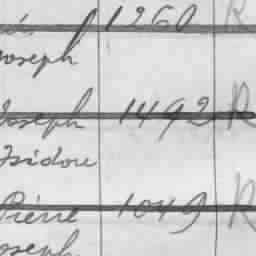 1260 R
Joseph
Joseph 1492 R
Isidore
Pierre 1049 R
Joseph